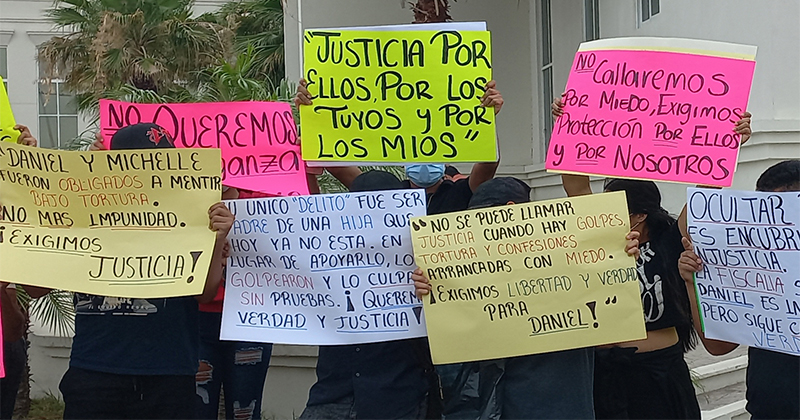 "JUSTICIA POR
ELLOS, POR LOS
TUYOS Y POR
LOS MIOS"
NO Callaremos
POR MIEDO, EXIGIMOS
PROTECCIÓN POR ELLOS
Y POR NOSOTROS
NO QUEREMOS
DANIEL Y MICHELLE
FUERON OBLIGADOS A MENTIR
BAJO TORTURA.
NO MAS IMPUNIDAD.
¡EXIGIMOS
JUSTICIA!
U UNICO "DELITO" FUE SER
PADRE DE UNA HIJA QUE
HOY YA NO ESTA. EN
LUGAR DE APOYARLO, LO
GOLPEARON Y LO CULPA
SIN PRUEBAS. ¡QUEREM
VERDAD Y JUSTICIA!
"NO SE PUEDE LLAMAR
JUSTICIA CUANDO HAY GOLPES,
TORTURA Y CONFESIONES
ARRANCADAS CON MIEDO.
¡EXIGIMOS LIBERTAD Y VERDAD
PARA
DANIEL!"
OCULTAR
ES ENCUBRI
INJUSTICIA.
LA FISCALIA S
DANIEL ES IN
PERO SIGUE C